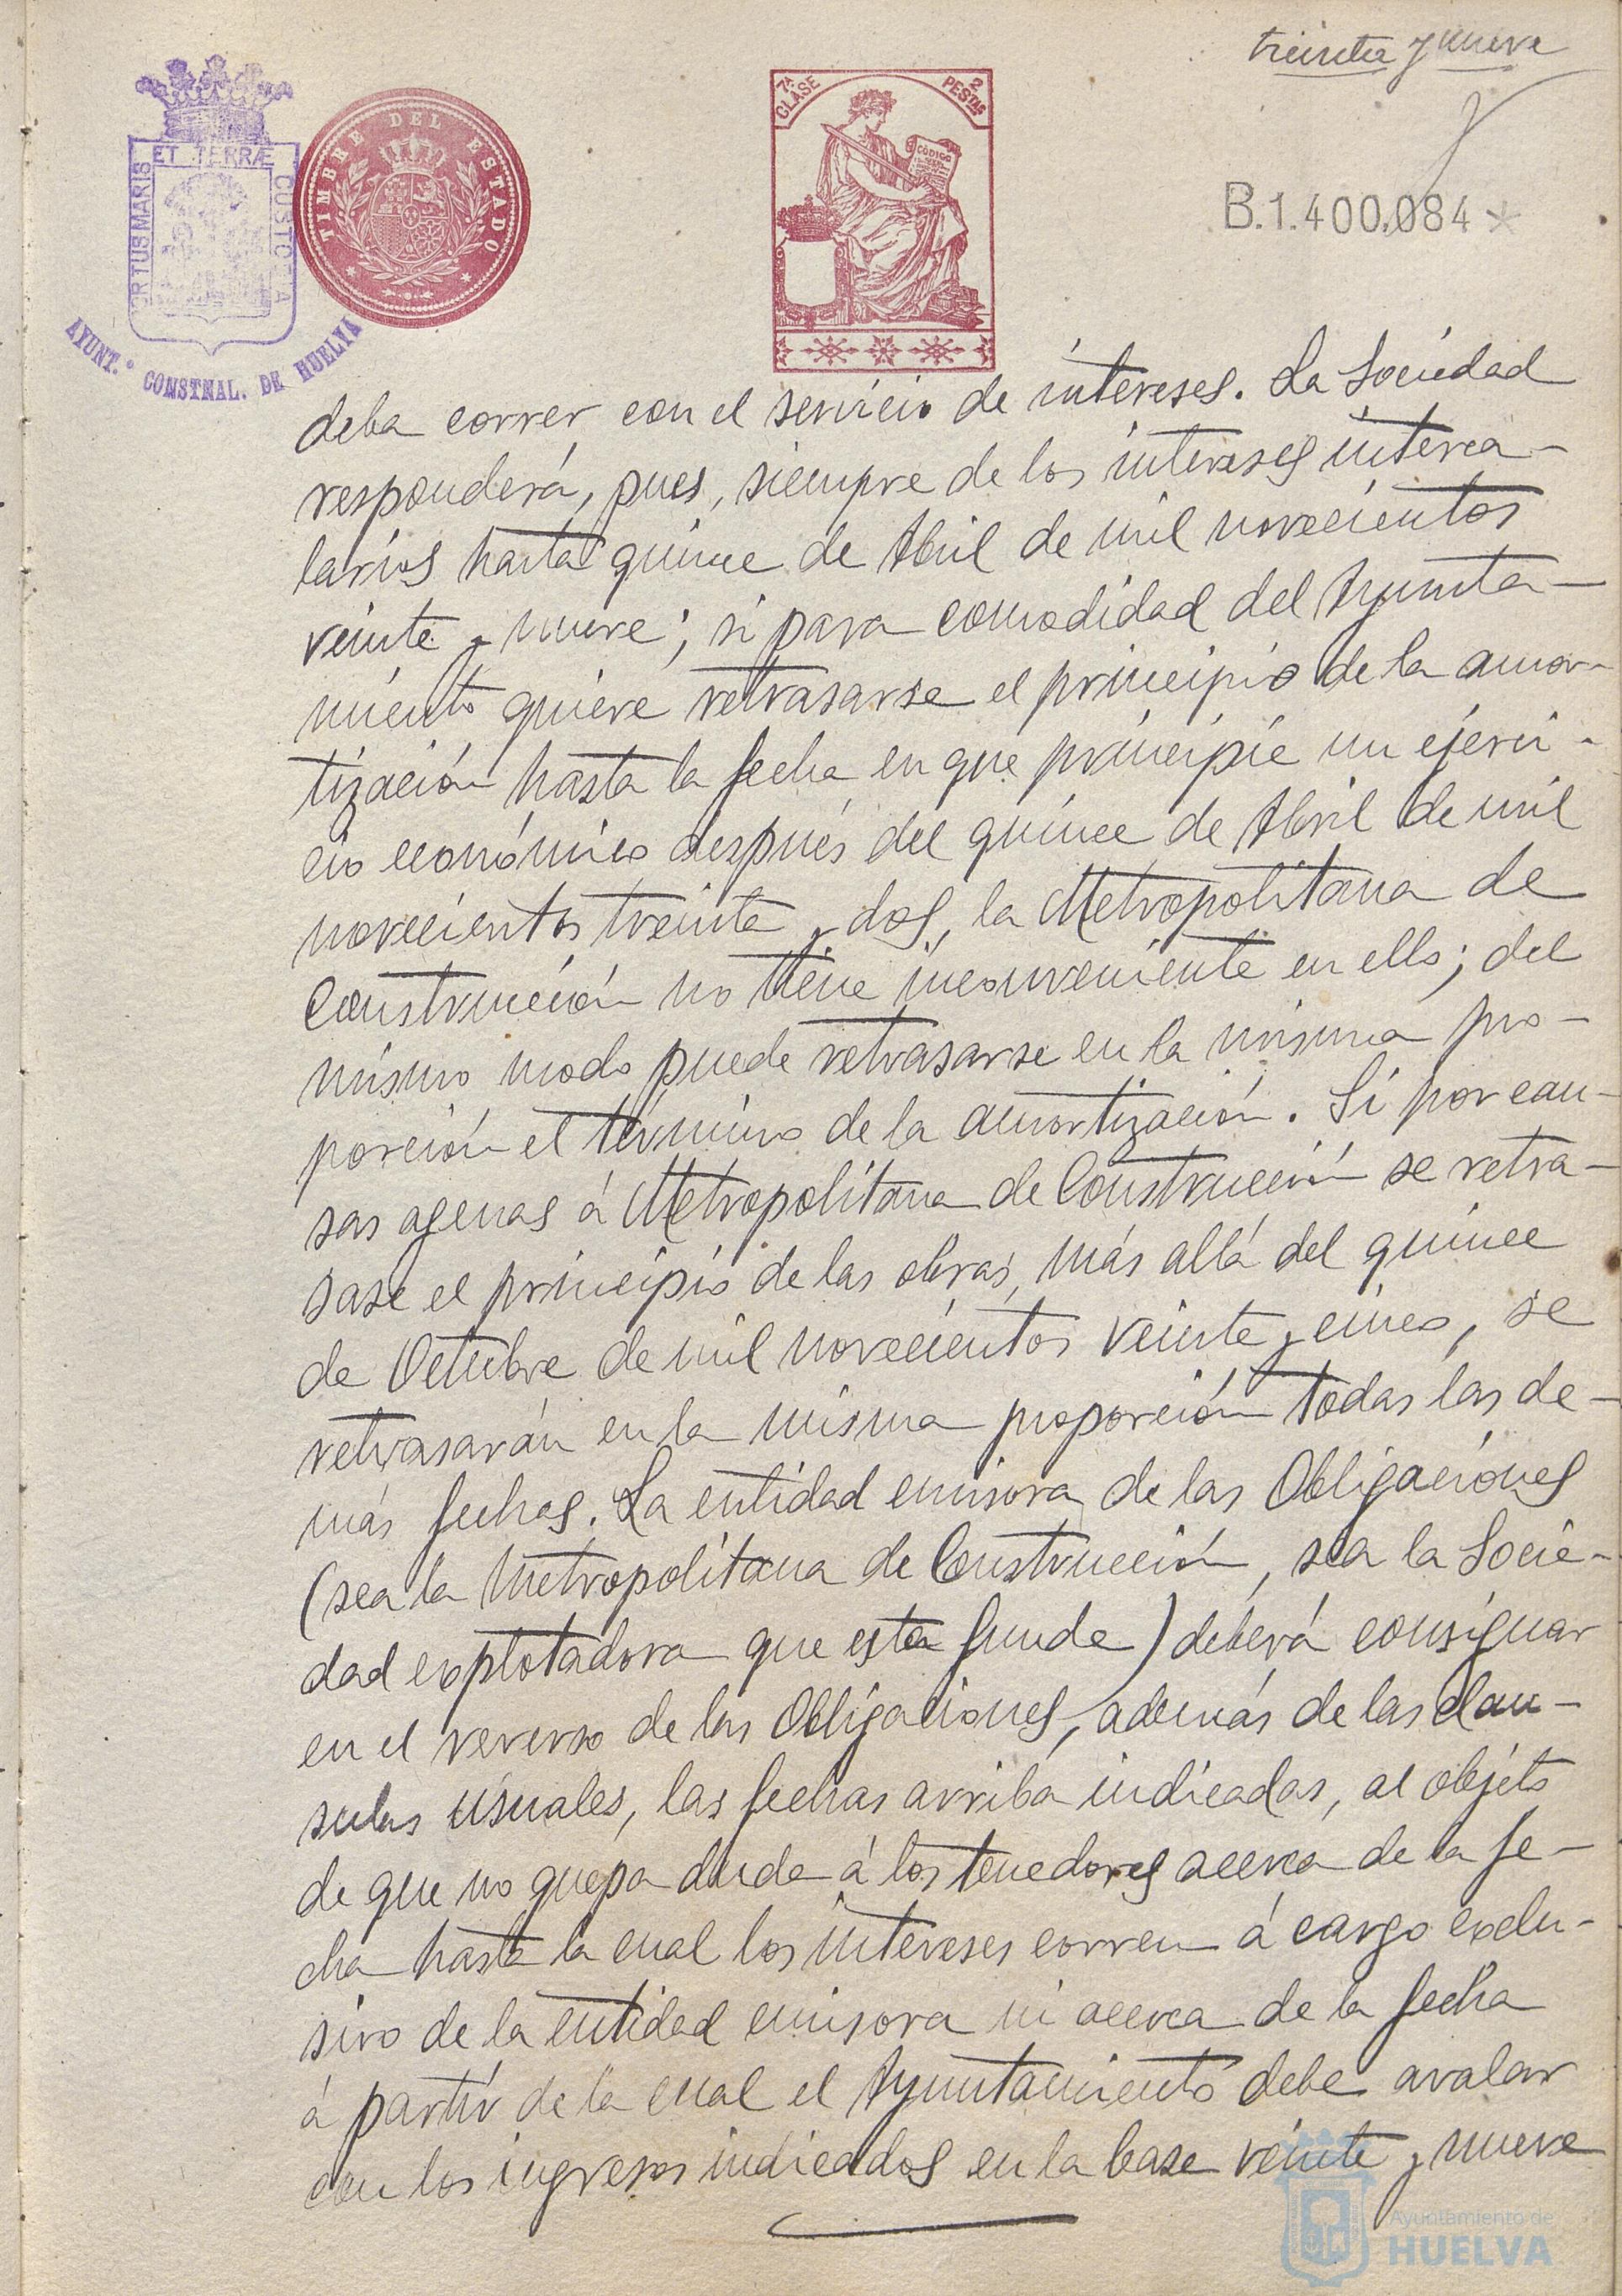 treinta y nueve
7ª CLASE
2 PESTAS
CÓDIGO
TIMBRE DEL ESTADO
ORTUS MARIS ET TERRÆ CUSTODIA
AYUNT.º CONSTNAL. DE HUELVA
B.1.400.084*
deba correr con el servicio de intereses. La Sociedad
responderá, pues, siempre de los intereses interca-
larios hasta quince de Abril de mil novecientos
veinte y nueve; si para comodidad del Ayunta-
miento quiere retrasarse el principio de la amor-
tización hasta la fecha en que principie un ejerci-
cio económico después del quince de Abril de mil
novecientos treinta y dos, la Metropolitana de
Construcción no tiene inconveniente en ello; del
mismo modo puede retrasarse en la misma pro-
porción el término de la amortización. Si por cau-
sas agenas á Metropolitana de Construcción se retra-
sase el principio de las obras, más allá del quince
de Octubre de mil novecientos veinte y cinco, se
retrasarán en la misma proporción todas las de-
más fechas. La entidad emisora de las Obligaciones
(sea la Metropolitana de Construcción, sea la Socie-
dad explotadora que esta funde) deberá consignar
en el reverso de las Obligaciones, además de las clau-
sulas usuales, las fechas arriba indicadas, al objeto
de que no quepa duda á los tenedores acerca de la fe-
cha hasta la cual los intereses corren á cargo exclu-
sivo de la entidad emisora ni acerca de la fecha
á partir de la cual el Ayuntamiento debe avalar
con los ingresos indicados en la base veinte y nueve
Ayuntamiento de
HUELVA